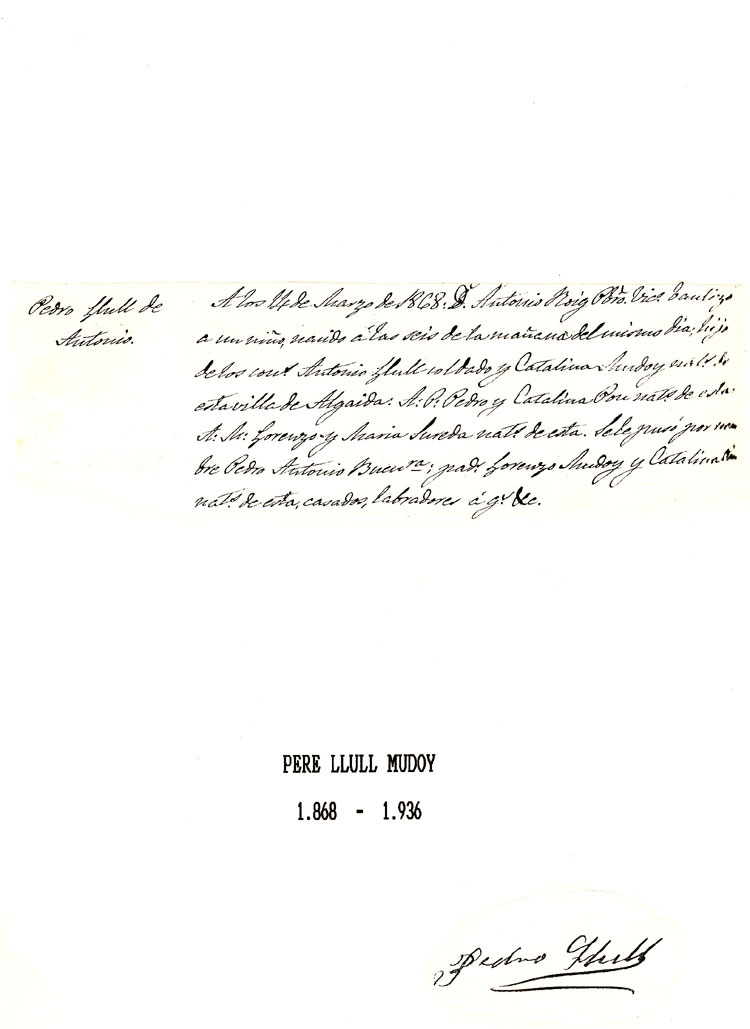 Pedro Llull de
Antonio.
A los 4 de Marzo de 1868. D. Antonio Roig Pbro. Vicº bautizo
a un niño, nacido á las seis de la mañana del mismo dia, hijo
de los cons. Antonio Llull soldado y Catalina Mudoy nats. de
esta villa de Algaida: A. P. Pedro y Catalina Pou nats. de esta.
A. M. Lorenzo y Maria Sureda nats. de esta. Se le pusó por nom
bre Pedro Antonio Buenvra; pads. Lorenzo Mudoy y Catalina
nats. de esta, casados, labradores á q. &c.
PERE LLULL MUDOY
1.868 - 1.936
Pedro Llull